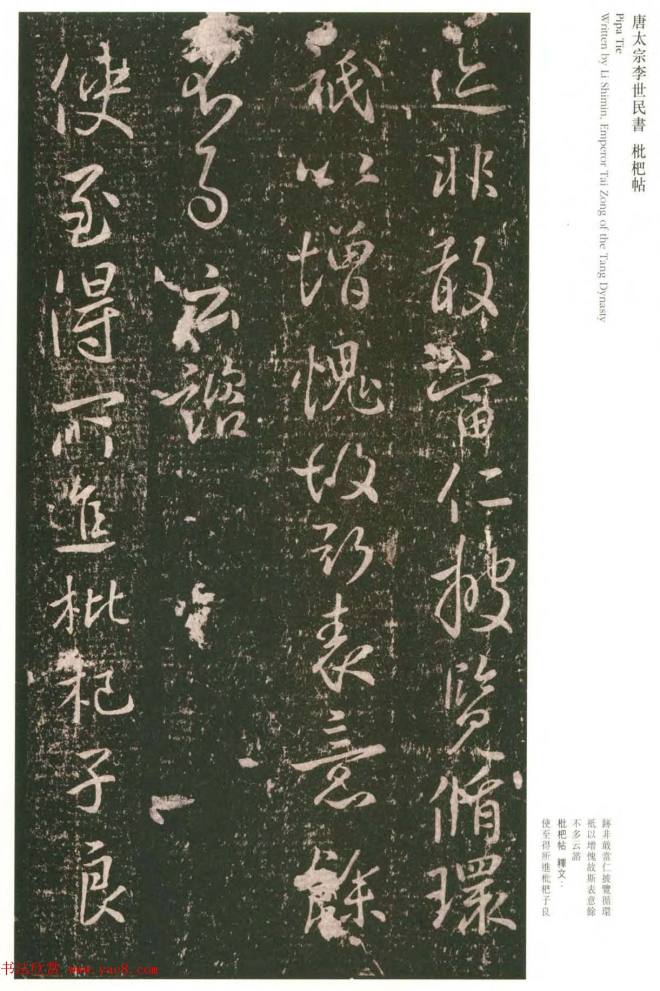 唐太宗李世民書 枇杷帖
Pipa Tie
Written by Li Shimin, Emperor Tai Zong of the Tang Dynasty
迹非敢當仁披覽循環
祇以增愧故斯表意餘
不多云諮
使至得所進枇杷子良
跡非敢當仁披覽循環
祇以增愧故斯表意餘
不多云諮
枇杷帖 釋文：
使至得所進枇杷子良
书法欣赏 www.yac8.com